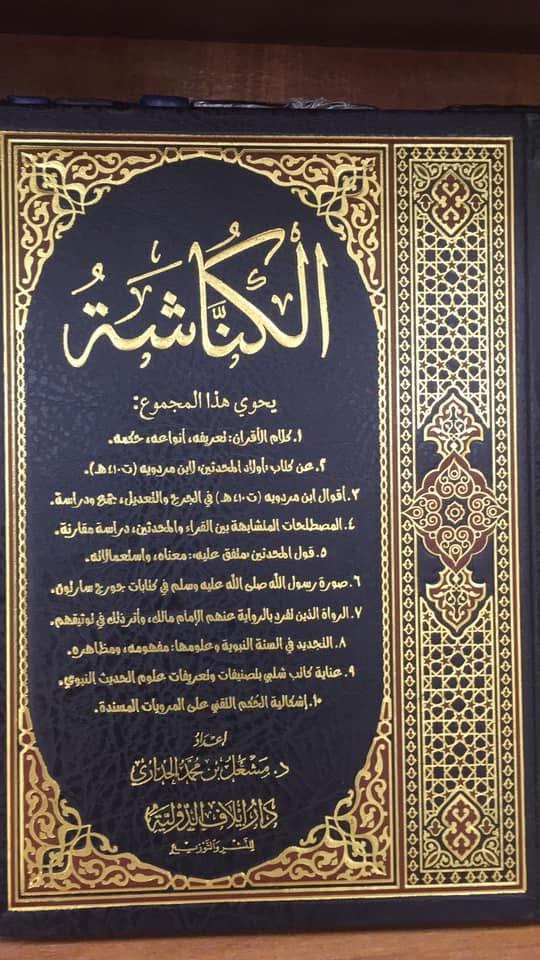 الكُنَّاشَةُ
يحوي هذا المجموع:
١. كلام الأقران: تعريفه، أنواعه، حكمه.
٢. عن كتاب «أولاد المحدثين» لابن مردويه (ت٤١٠هـ).
٣. أقوال ابن مردويه (ت٤١٠هـ) في الجرح والتعديل، جمع ودراسة.
٤. المصطلحات المتشابهة بين القراء والمحدثين، دراسة مقارنة.
٥. قول المحدثين «متفق عليه»: معناه، واستعمالاته.
٦. صورة رسول الله صلى الله عليه وسلم في كتابات جورج سارتون.
٧. الرواة الذين تفرد بالرواية عنهم الإمام مالك، وأثر ذلك في توثيقهم.
٨. التجديد في السنة النبوية وعلومها: مفهومه، ومظاهره.
٩. عناية كاتب شلبي بتصنيفات وتعريفات علوم الحديث النبوي.
١٠. إشكالية الحكم التقني على المرويات المسندة.
إعداد
د. مشعل بن محمد الحداري
دار إيلاف الدولية
للنشر والتوزيع